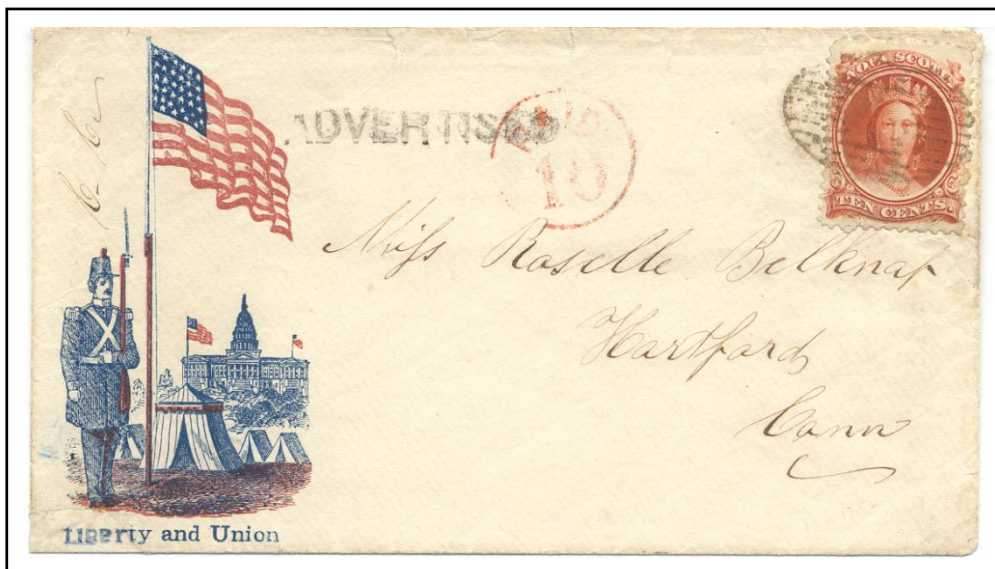 ADVERTISED
10
NOVA SCOTIA
TEN CENTS.
Miss Roselle Belknap
Hartford
Conn
Liberty and Union